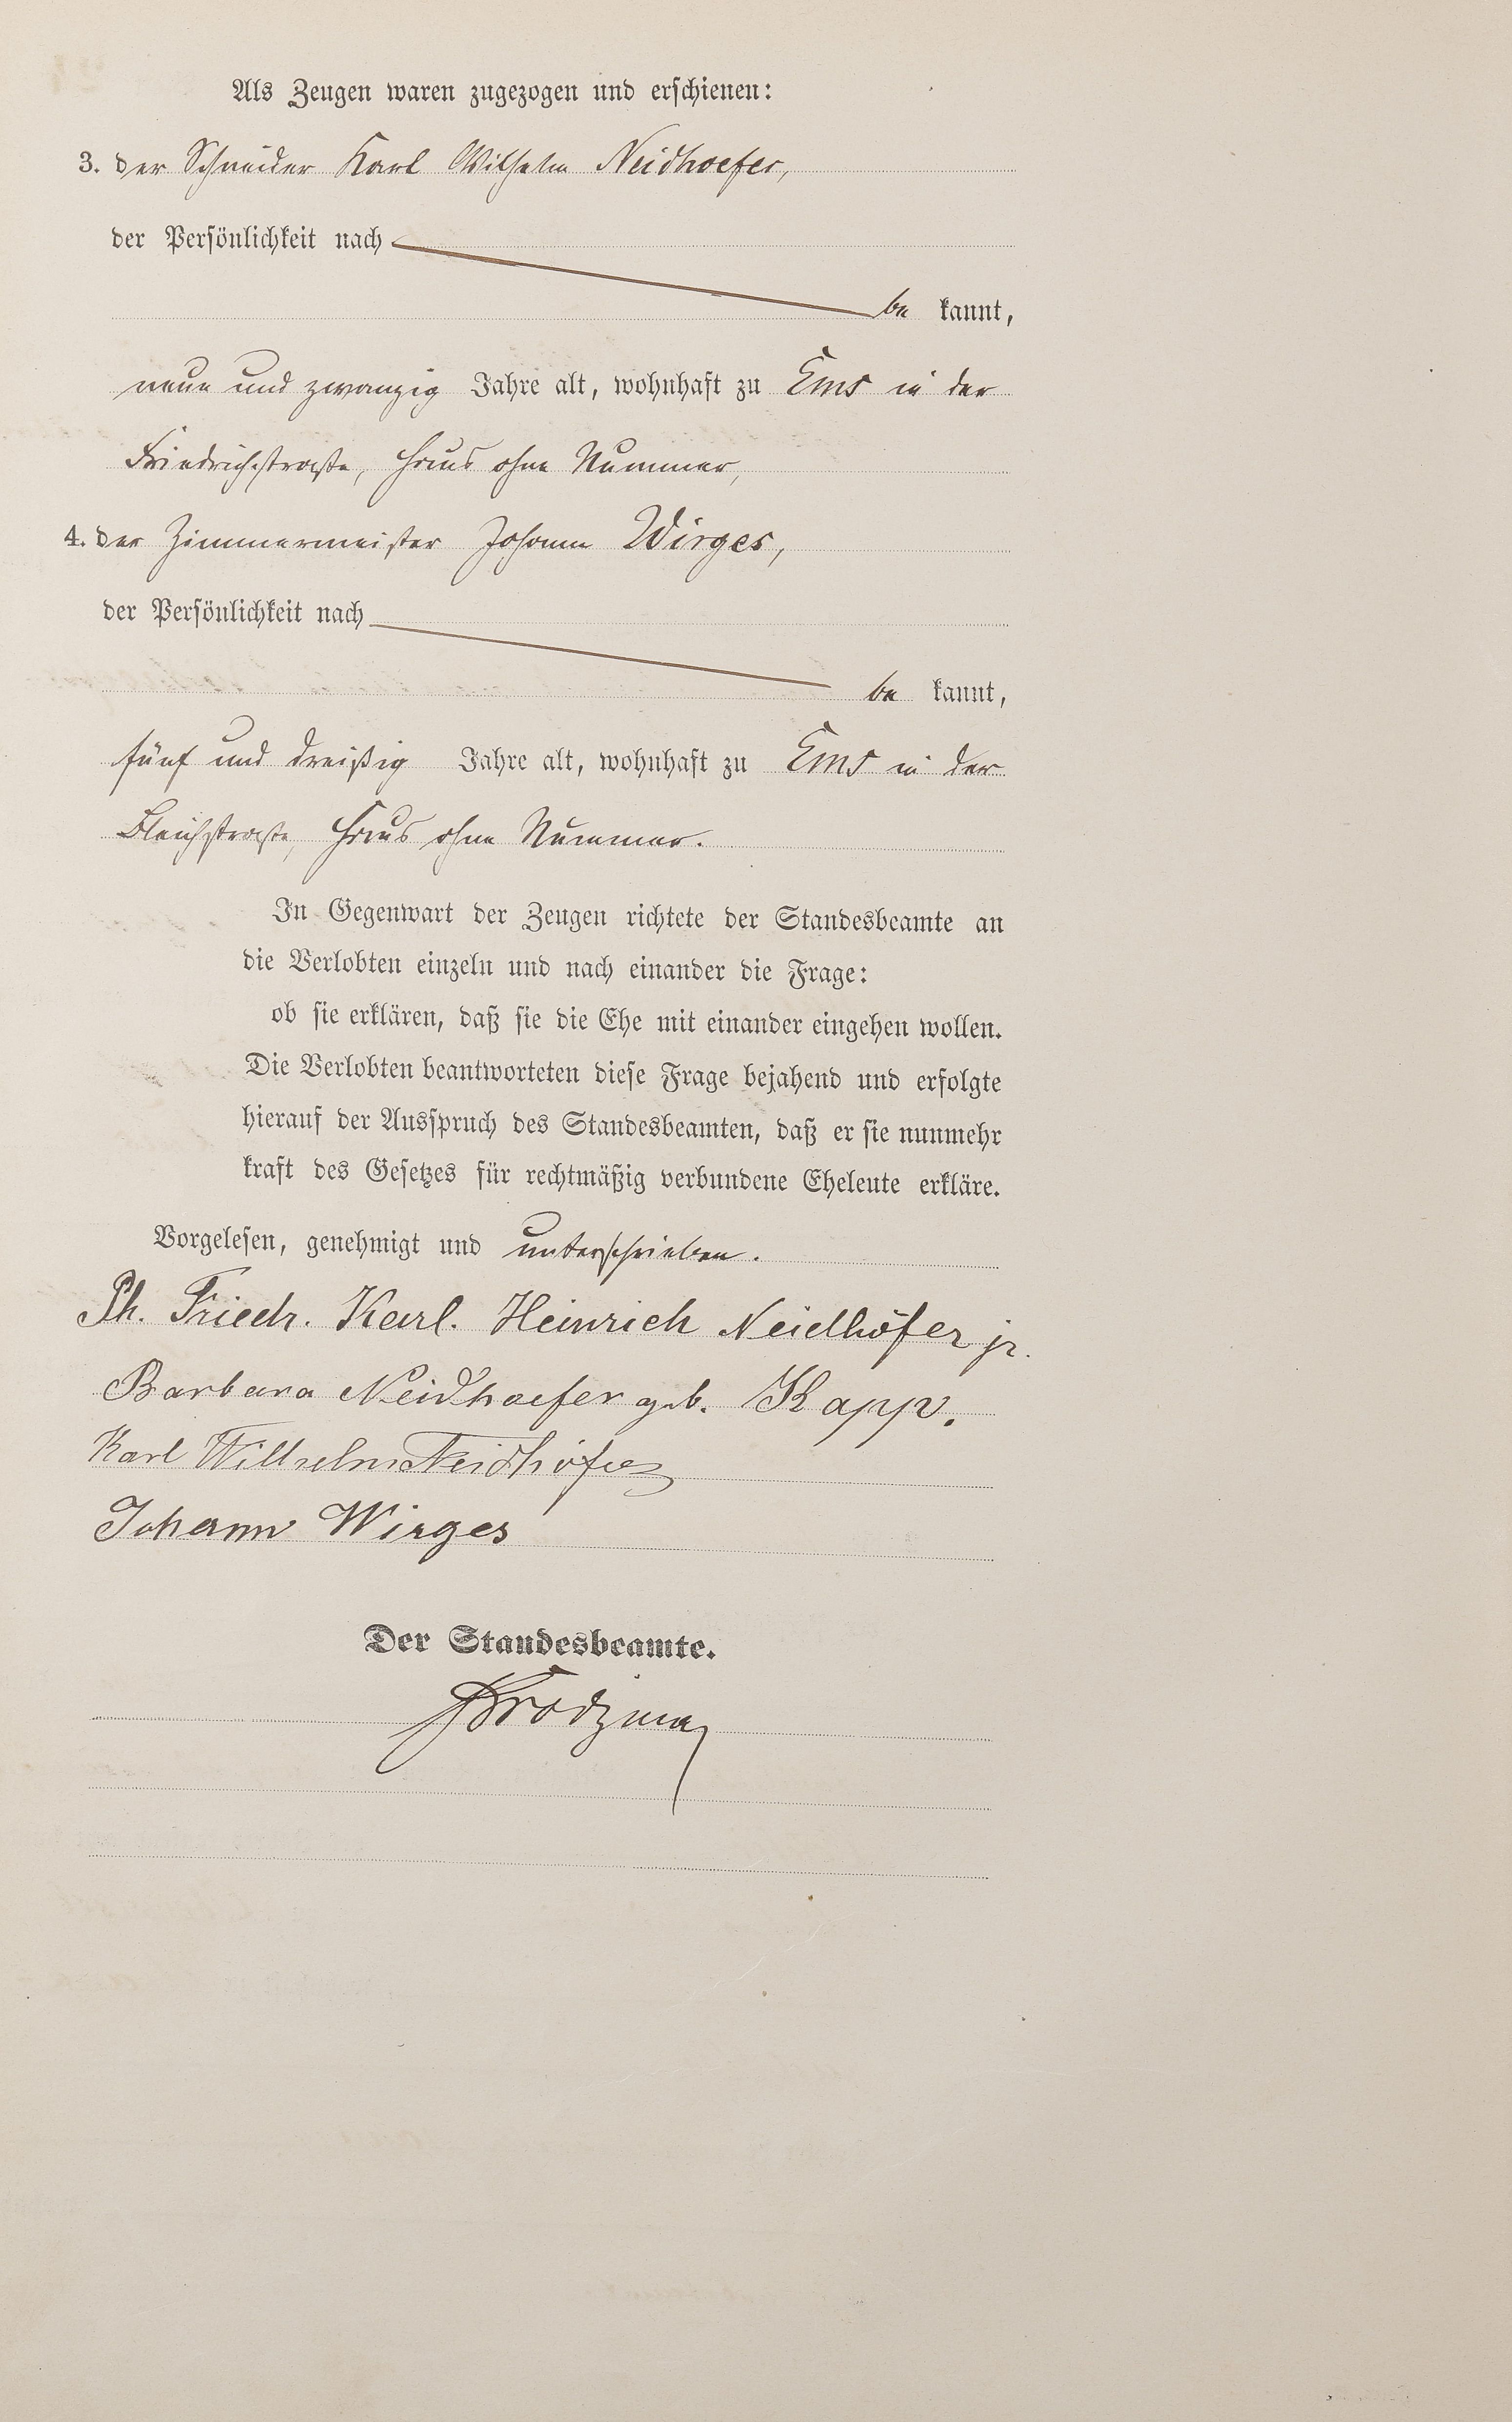 Als Zeugen waren zugezogen und erschienen:
3. der Schneider Karl Wilhelm Neidhoefer,
der Persönlichkeit nach
be kannt,
neun und zwanzig Jahre alt, wohnhaft zu Ems in der
Friedrichstraße, Haus ohne Nummer,
4. der Zimmermeister Johann Wirges,
der Persönlichkeit nach
be kannt,
fünf und dreißig Jahre alt, wohnhaft zu Ems in der
Bleichstraße, Haus ohne Nummer.
In Gegenwart der Zeugen richtete der Standesbeamte an
die Verlobten einzeln und nach einander die Frage:
ob sie erklären, daß sie die Ehe mit einander eingehen wollen.
Die Verlobten beantworteten diese Frage bejahend und erfolgte
hierauf der Ausspruch des Standesbeamten, daß er sie nunmehr
kraft des Gesetzes für rechtmäßig verbundene Eheleute erkläre.
Vorgelesen, genehmigt und unterschrieben.
Ph. Friedr. Karl. Heinrich Neidhöfer jr.
Barbara Neidhoefer geb. Kapp.
Karl Wilhelm Neidhöfer
Johann Wirges
Der Standesbeamte.